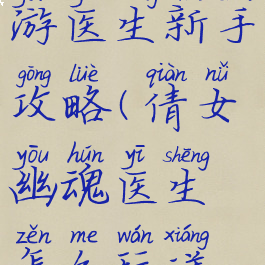 游医生新手
gōng lüè qiàn nǚ
攻略(倩女
yōu hún yī shēng
幽魂医生
zěn me wán xiáng